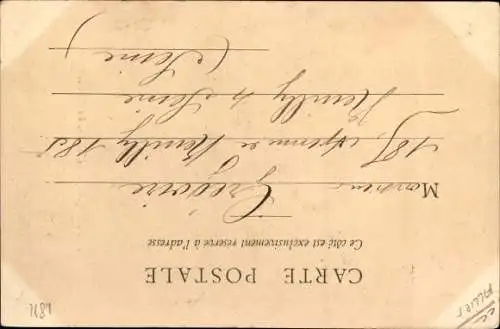 CARTE POSTALE
Ce côté est exclusivement réservé à l'adresse
Monsieur Grégoire
187, avenue de Neuilly 187
Neuilly s/ Seine
(Seine)
ALLIER